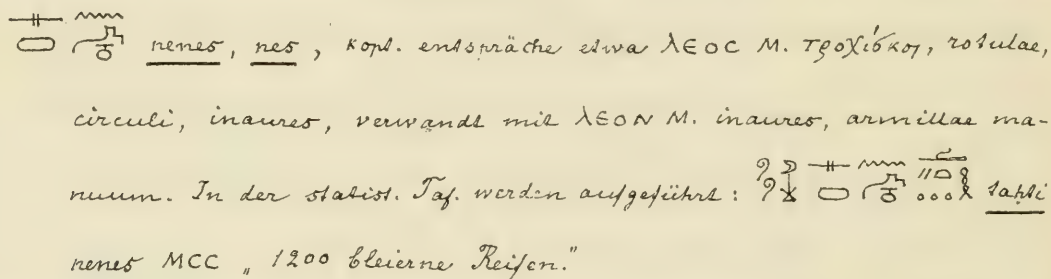 nenes, nes, kopt. entspräche etwa ⲗⲉⲟⲥ M. τροχίσκοι, rotulae,
circuli, inaures, verwandt mit ⲗⲉⲟⲛ M. inaures, armillae ma-
nuum. In der statist. Taf. werden aufgeführt: taḥti
nenes MCC „1200 bleierne Reifen."